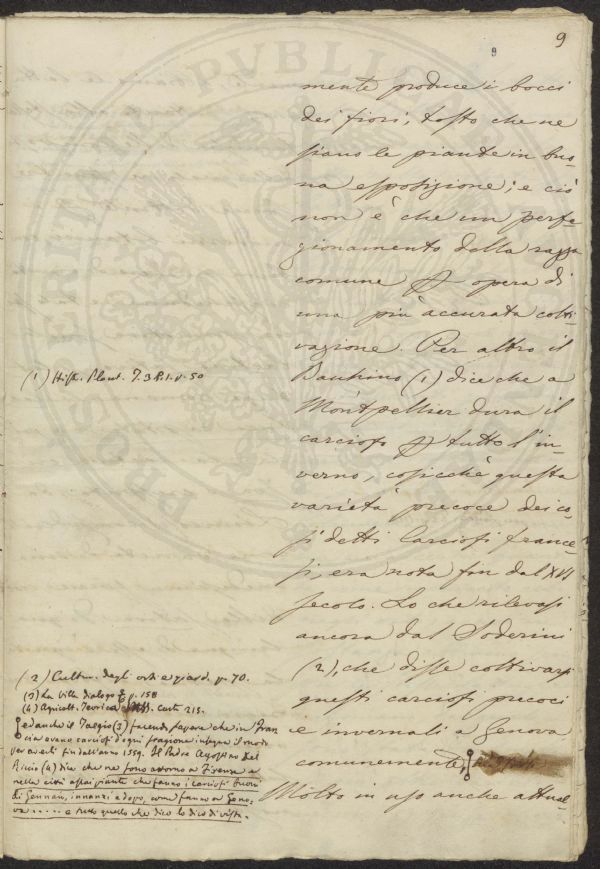 9
9
mente produce i bocci
dei fiori, tosto che ne
siano le piante in buo-
na esposizione; e ciò
non è che un perfe-
zionamento della razza
comune opera di
una più accurata colti-
vazione. Per altro il
Bauhino (1) dice che a
Montpellier dura il
carciofo tutto l'in-
verno, cosicchè questa
varietà precoce dei co-
sì detti Carciofi france-
si, era nota fin dal XVI
secolo. Lo che rilevasi
ancora dal Soderini
(2), che disse coltivarsi
questi carciofi precoci
e invernali a Genova
comunemente
Molto in uso anche attual-
(1) Hist. Plant. T. 3 p. 50
(2) Cultur. degli orti e giard. p. 70.
(3) La Villa dialogo p. 158
(4) Agricolt. Teorica Mss. Carte 215.
ed anche il Taegio (3) facendo sapere che in Fran
cia avano carciofi d'ogni stagione insegna il modo
per averli fin dall'anno 1559. Il Padre Agostino Del
Riccio (4) dice che ne sono attorno a Firenze e
nella città assai piante che fanno i carciofi buoni
di Gennaio, innanzi e dopo, come fanno a Geno-
va ..... e tutto quello che dico lo dico di vista.
PROSPERITATI PUBLICAE